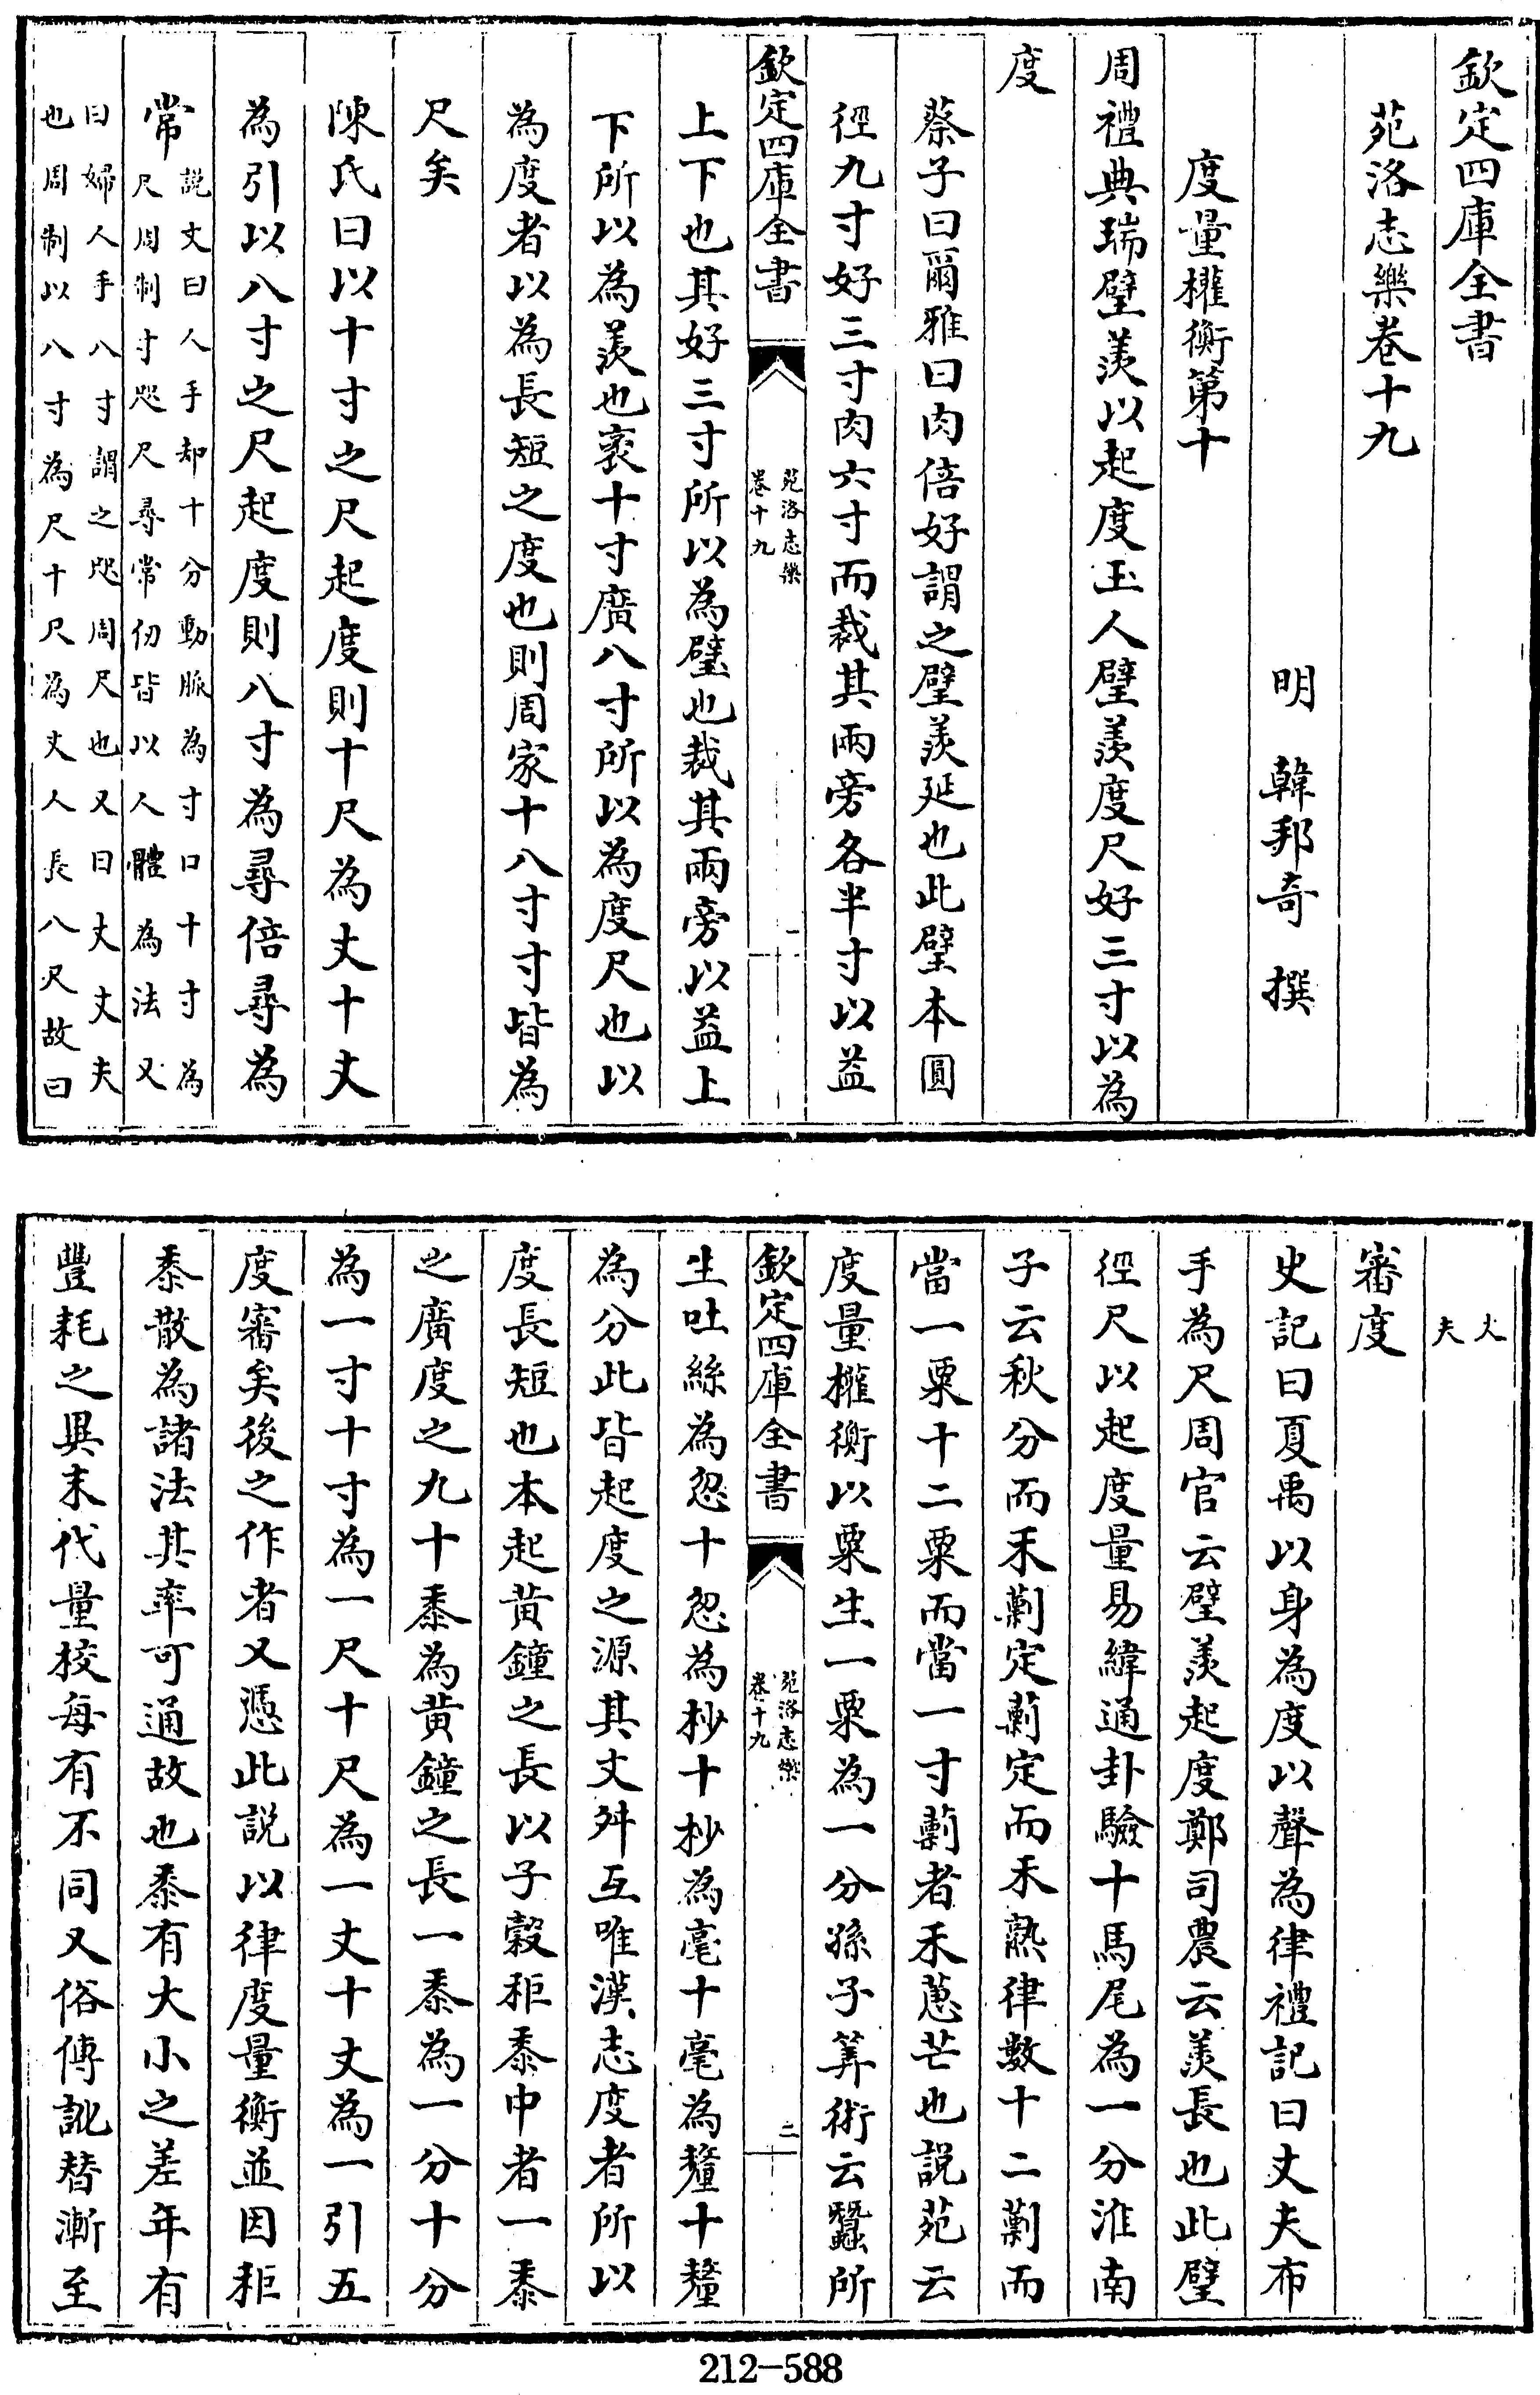 欽定四庫全書
苑洛志樂卷十九
明 韓邦奇 撰
度量權衡第十
周禮典瑞璧羨以起度玉人璧羨度尺好三寸以為
度
蔡子曰爾雅曰肉倍好謂之璧羨延也此璧本圓
徑九寸好三寸肉六寸而裁其兩旁各半寸以益
欽定四庫全書
苑洛志樂
卷十九
一
上下也其好三寸所以為璧也裁其兩旁以益上
下所以為羨也袤十寸廣八寸所以為度尺也以
為度者以為長短之度也則周家十八寸寸皆為
尺矣
陳氏曰以十寸之尺起度則十尺為丈十丈
為引以八寸之尺起度則八寸為尋倍尋為
常
說文曰人手却十分動脈為寸口十寸為
尺周制寸咫尺尋常仞皆以人體為法又
曰婦人手八寸謂之咫周尺也又曰丈丈夫
也周制以八寸為尺十尺為丈人長八尺故曰
丈
夫
審度
史記曰夏禹以身為度以聲為律禮記曰丈夫布
手為尺周官云璧羨起度鄭司農云羨長也此璧
徑尺以起度量易緯通卦驗十馬尾為一分淮南
子云秋分而禾䅺定䅺定而禾熟律數十二䅺而
當一粟十二粟而當一寸䅺者禾蔥芒也說苑云
度量權衡以粟生一粟為一分孫子筭術云蠶所
欽定四庫全書
苑洛志樂
卷十九
二
生吐絲為忽十忽為杪十杪為毫十毫為釐十釐
為分此皆起度之源其丈舛互唯漢志度者所以
度長短也本起黃鐘之長以子穀秬黍中者一黍
之廣度之九十黍為黃鐘之長一黍為一分十分
為一寸十寸為一尺十尺為一丈十丈為一引五
度審矣後之作者又憑此說以律度量衡並因秬
黍散為諸法其率可通故也黍有大小之差年有
豐耗之異末代量校每有不同又俗傳訛替漸至
212-588